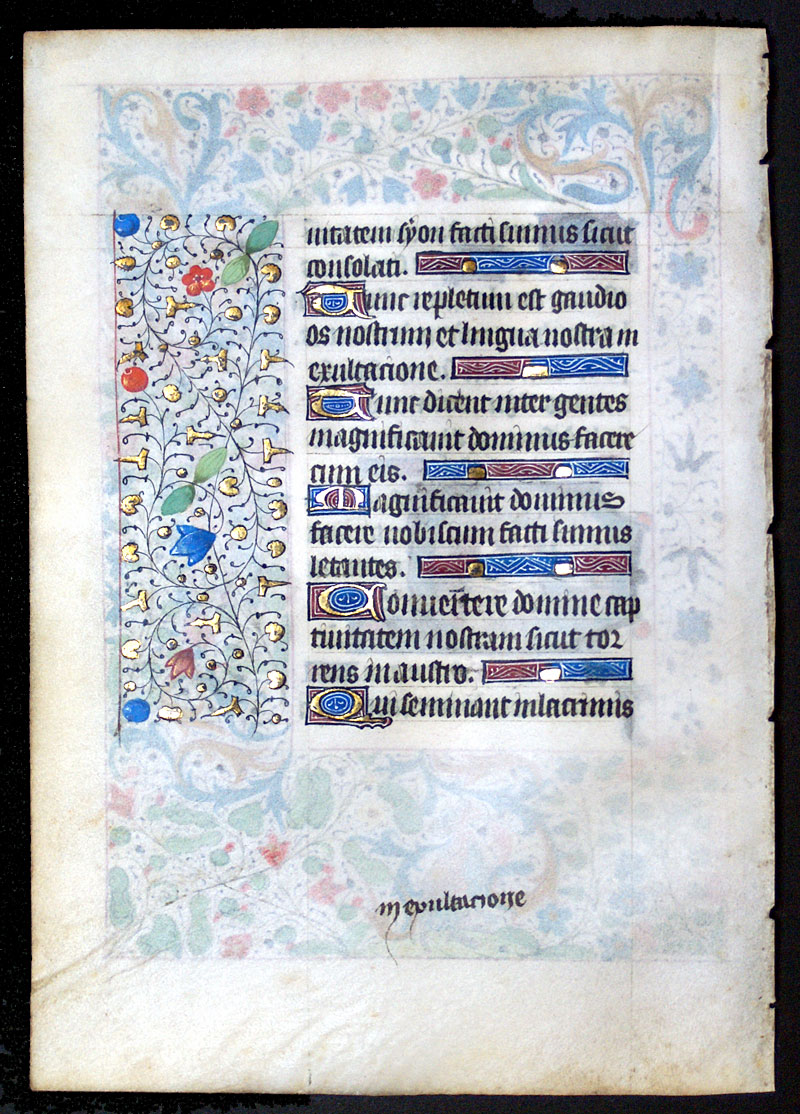 uitatem syon facti sumus sicut
consolati.
Tunc repletum est gaudio
os nostrum et lingua nostra in
exultacione.
Tunc dicent inter gentes
magnificauit dominus facere
cum eis.
Magnificauit dominus
facere nobiscum facti sumus
letantes.
Conuertere domine cap
tiuitatem nostram sicut tor
rens in austro.
Qui seminant in lacrimis
in exultacione